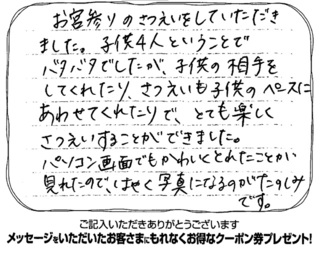 お宮参りのさつえいをしていただき
ました。子供4人ということで
バタバタでしたが、子供の相手を
してくれたり、さつえいも子供のペースに
あわせてくれたりで、とても楽しく
さつえいすることができました。
パソコン画面でもかわいくとれたことが
見れたので、はやく写真になるのがたのしみ
です。
ご記入いただきありがとうございます
メッセージをいただいたお客さまにもれなくお得なクーポン券プレゼント!